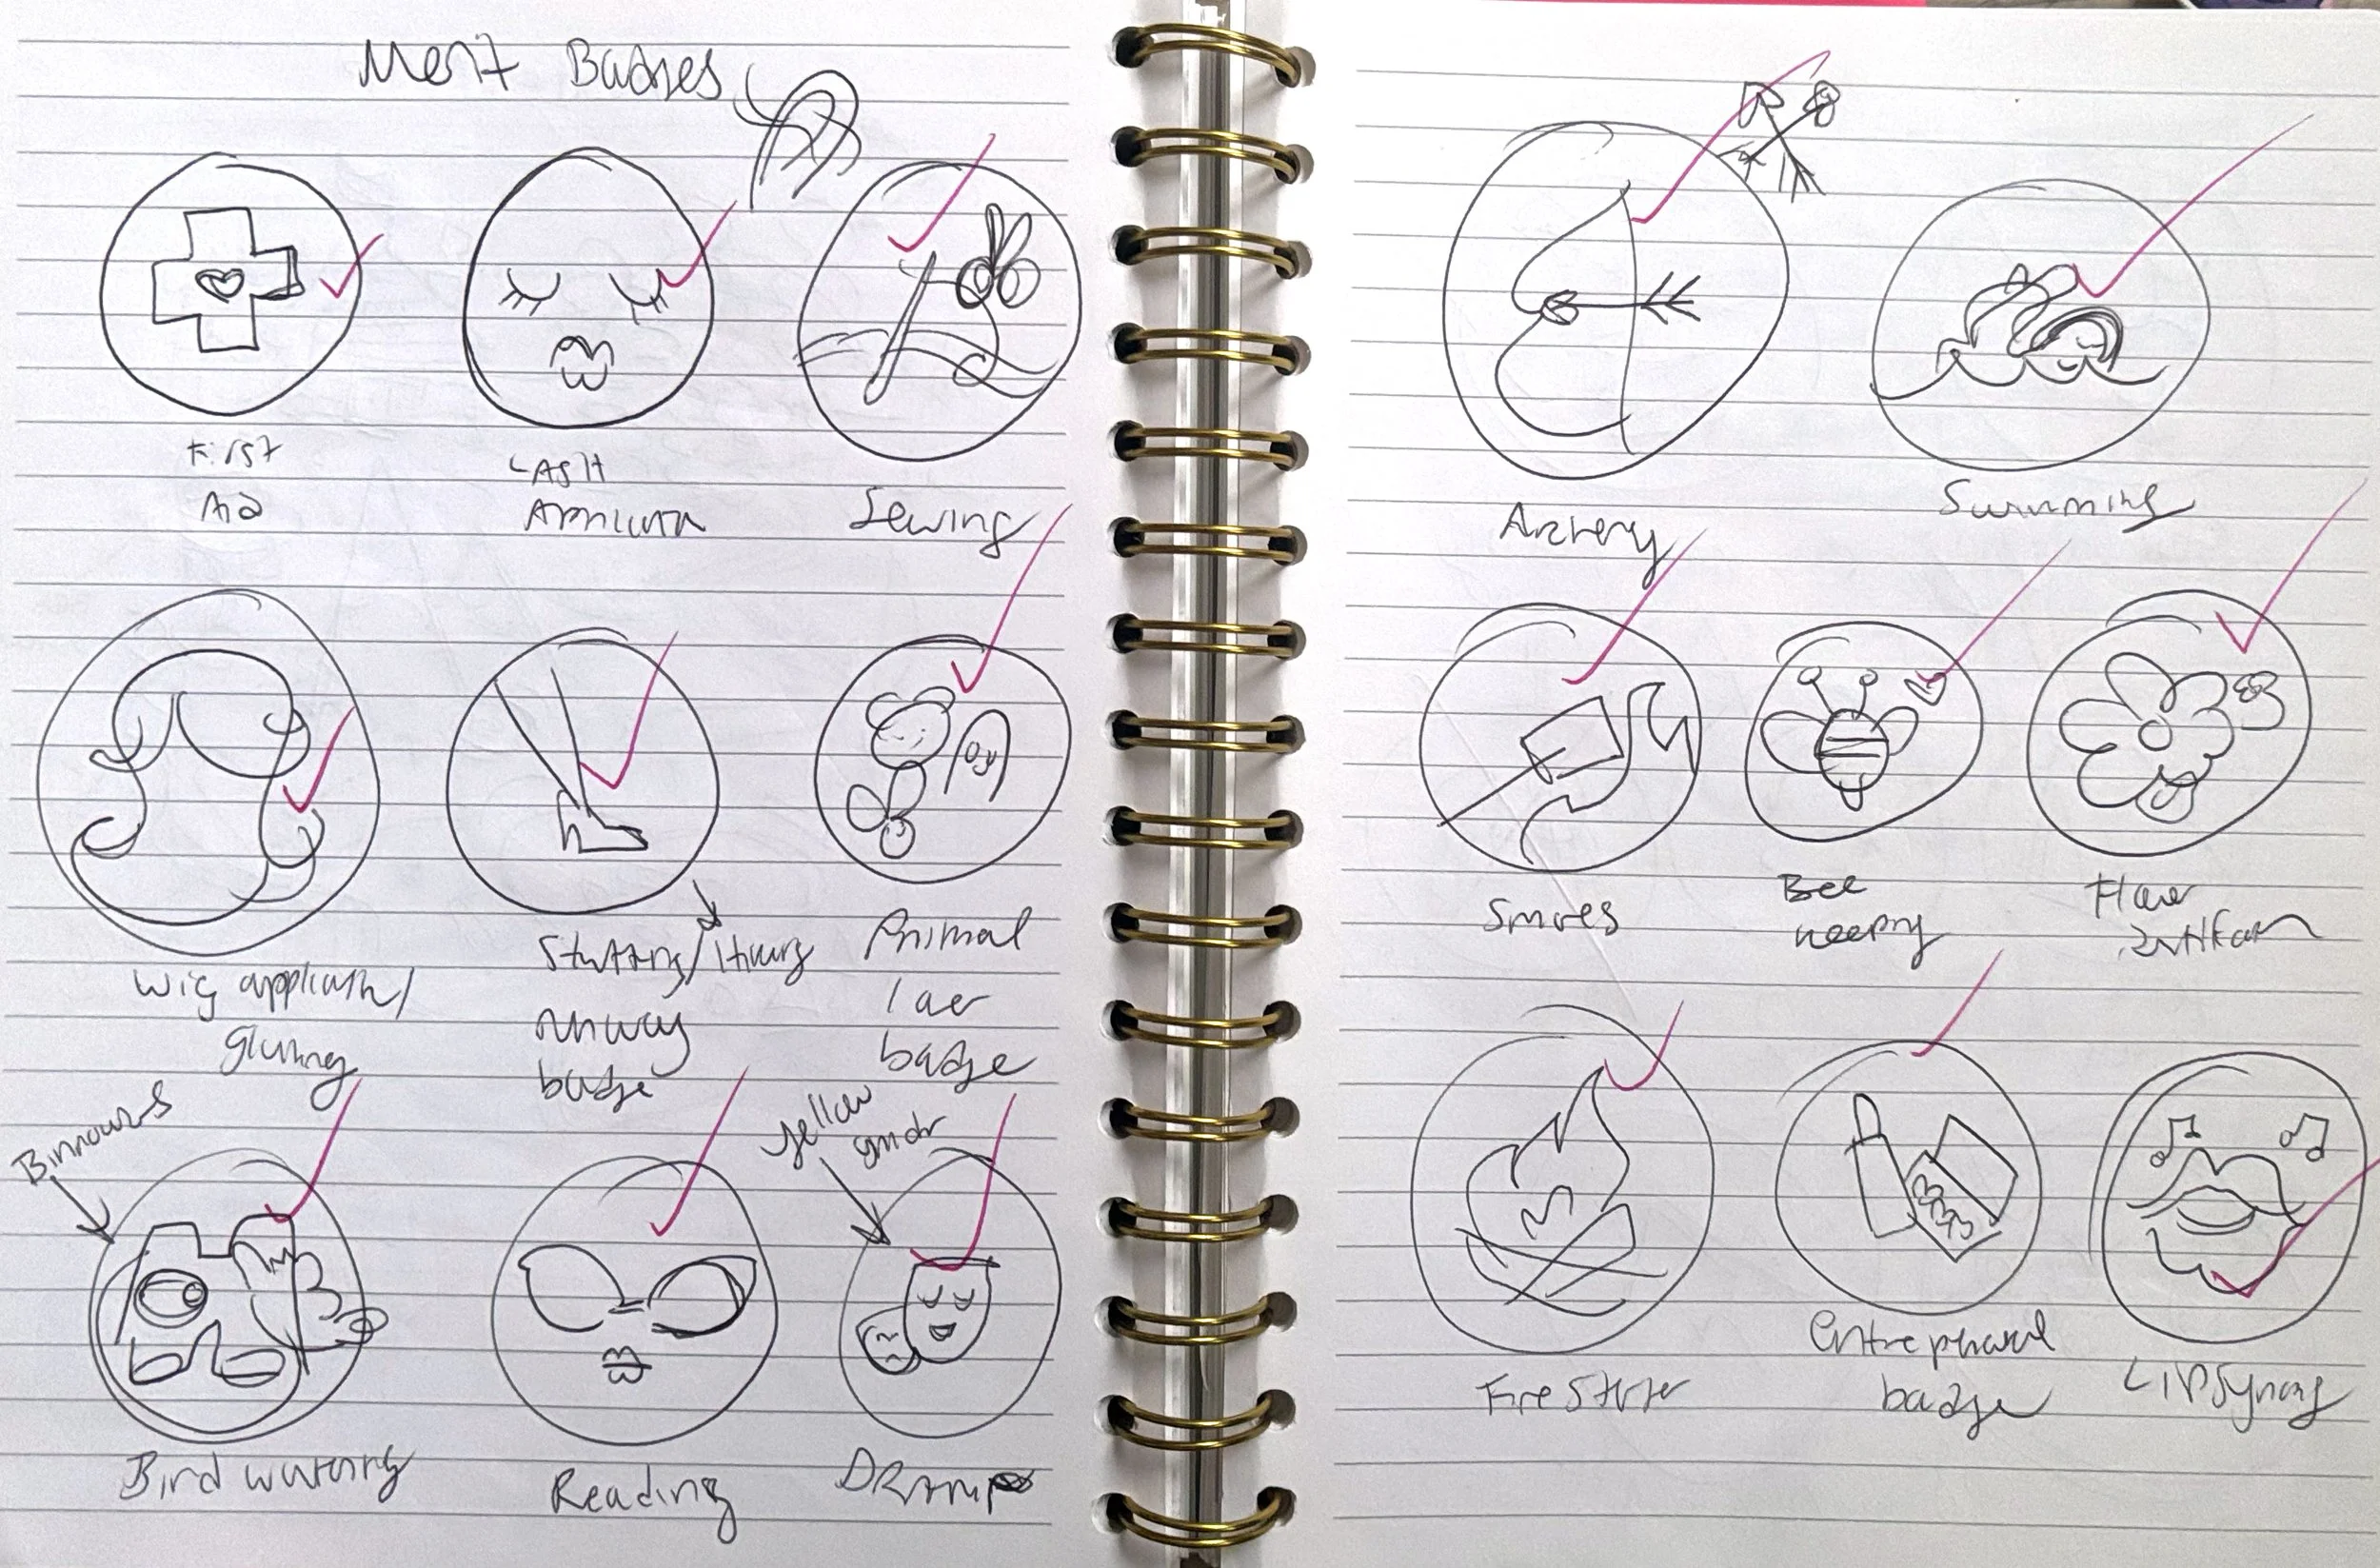 Merit Badges
First
Aid
LASH
Application
Sewing
Wig application/
gluing
Strutting/Hiking
runway
badge
Animal
lover
badge
Binoculars
Bird watching
Reading
yellow
Drama
Archery
Swimming
Smores
Bee
keeping
Flower
Fire Starter
Entrepreneur
badge
LIPSyncing